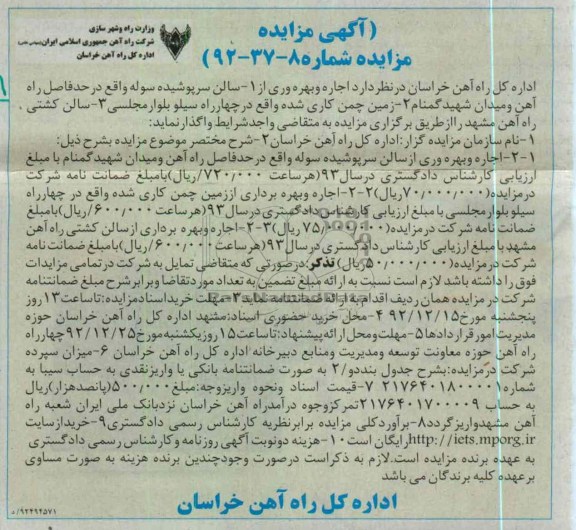 (آگهی مزایده
مزایده شماره۸-۳۷-۹۲)
وزارت راه وشهر سازی
شرکت راه آهن جمهوری اسلامی ایران
اداره کل راه آهن خراسان
اداره کل راه آهن خراسان درنظردارد اجاره وبهره وری از۱-سالن سرپوشیده سوله واقع در حدفاصل راه
آهن ومیدان شهیدگمنام۲-زمین چمن کاری شده واقع درچهارراه سیلو بلوارمجلسی۳-سالن کشتی
راه آهن مشهد راازطریق برگزاری مزایده به متقاضی واجدشرایط واگذارنماید:
۱-نام سازمان مزایده گزار:اداره کل راه آهن خراسان۲-شرح مختصر موضوع مزایده بشرح ذیل:
۲-۱-اجاره وبهره وری ازسالن سرپوشیده سوله واقع درحدفاصل راه آهن ومیدان شهیدگمنام با مبلغ
ارزیابی کارشناس دادگستری درسال۹۳(هرساعت ۷۲۰/۰۰۰/ریال)بامبلغ ضمانت نامه شرکت
درمزایده(۷۰/۰۰۰/۰۰۰ریال)۲-۲-اجاره وبهره برداری اززمین چمن کاری شده واقع در چهارراه
سیلو بلوارمجلسی با مبلغ ارزیابی کارشناس دادگستری درسال۹۳(هرساعت ۶۰۰/۰۰۰/ریال)بامبلغ
ضمانت نامه شرکت در مزایده(۷۵/۰۰۰/۰۰۰ریال)۲-۳-اجاره وبهره برداری ازسالن کشتی راه آهن
مشهد با مبلغ ارزیابی کارشناس دادگستری درسال۹۳(هرساعت ۶۰۰/۰۰۰/ریال)بامبلغ ضمانت نامه
شرکت در مزایده(۵۰/۰۰۰/۰۰۰ریال) تذکر:درصورتی که متقاضی تمایل به شرکت در تمامی مزایدات
فوق را داشته باشد لازم است نسبت به ارائه مبلغ تضمین به تعداد مورد تقاضا وبرابر شرح مبلغ ضمانتنامه
شرکت در مزایده همان ردیف اقدام به ارائه ضمانتنامه نماید۳-مهلت خریداسنادمزایده:تاساعت۱۳روز
پنجشنبه مورخ۹۲/۱۲/۱۵ ۴-محل خرید حضوری اسناد:مشهد اداره کل راه آهن خراسان حوزه
مدیریت امور قراردادها۵-مهلت ومحل ارائه پیشنهاد:تاساعت۱۵روزیکشنبه مورخ۹۲/۱۲/۲۵چهارراه
راه آهن حوزه معاونت توسعه ومدیریت ومنابع دبیرخانه اداره کل راه آهن خراسان ۶-میزان سپرده
شرکت درمزایده:بشرح جدول بنددو/۲ به صورت ضمانتنامه بانکی یا واریزنقدی به حساب سیبا به
شماره۲۱۷۶۴۰۱۸۰۰۰۰۱ ۷-قیمت اسناد ونحوه واریزوجه:مبلغ۵۰۰/۰۰۰(پانصدهزار)ریال
به حساب ۲۱۷۶۴۰۱۷۰۰۰۰۹تمرکزوجوه درآمدراه آهن خراسان نزدبانک ملی ایران شعبه راه
آهن مشهدواریزگردد۸-برآوردکلی مزایده برابرنظریه کارشناس رسمی دادگستری۹-خریدازسایت
http://iets.mporg.irرایگان است۱۰-هزینه دونوبت آگهی روزنامه وکارشناس رسمی دادگستری
به عهده برنده مزایده است.لازم به ذکراست درصورت وجودچندین برنده هزینه به صورت مساوی
برعهده کلیه برندگان می باشد
اداره کل راه آهن خراسان
۹۲۴۹۴۵۷۱/د